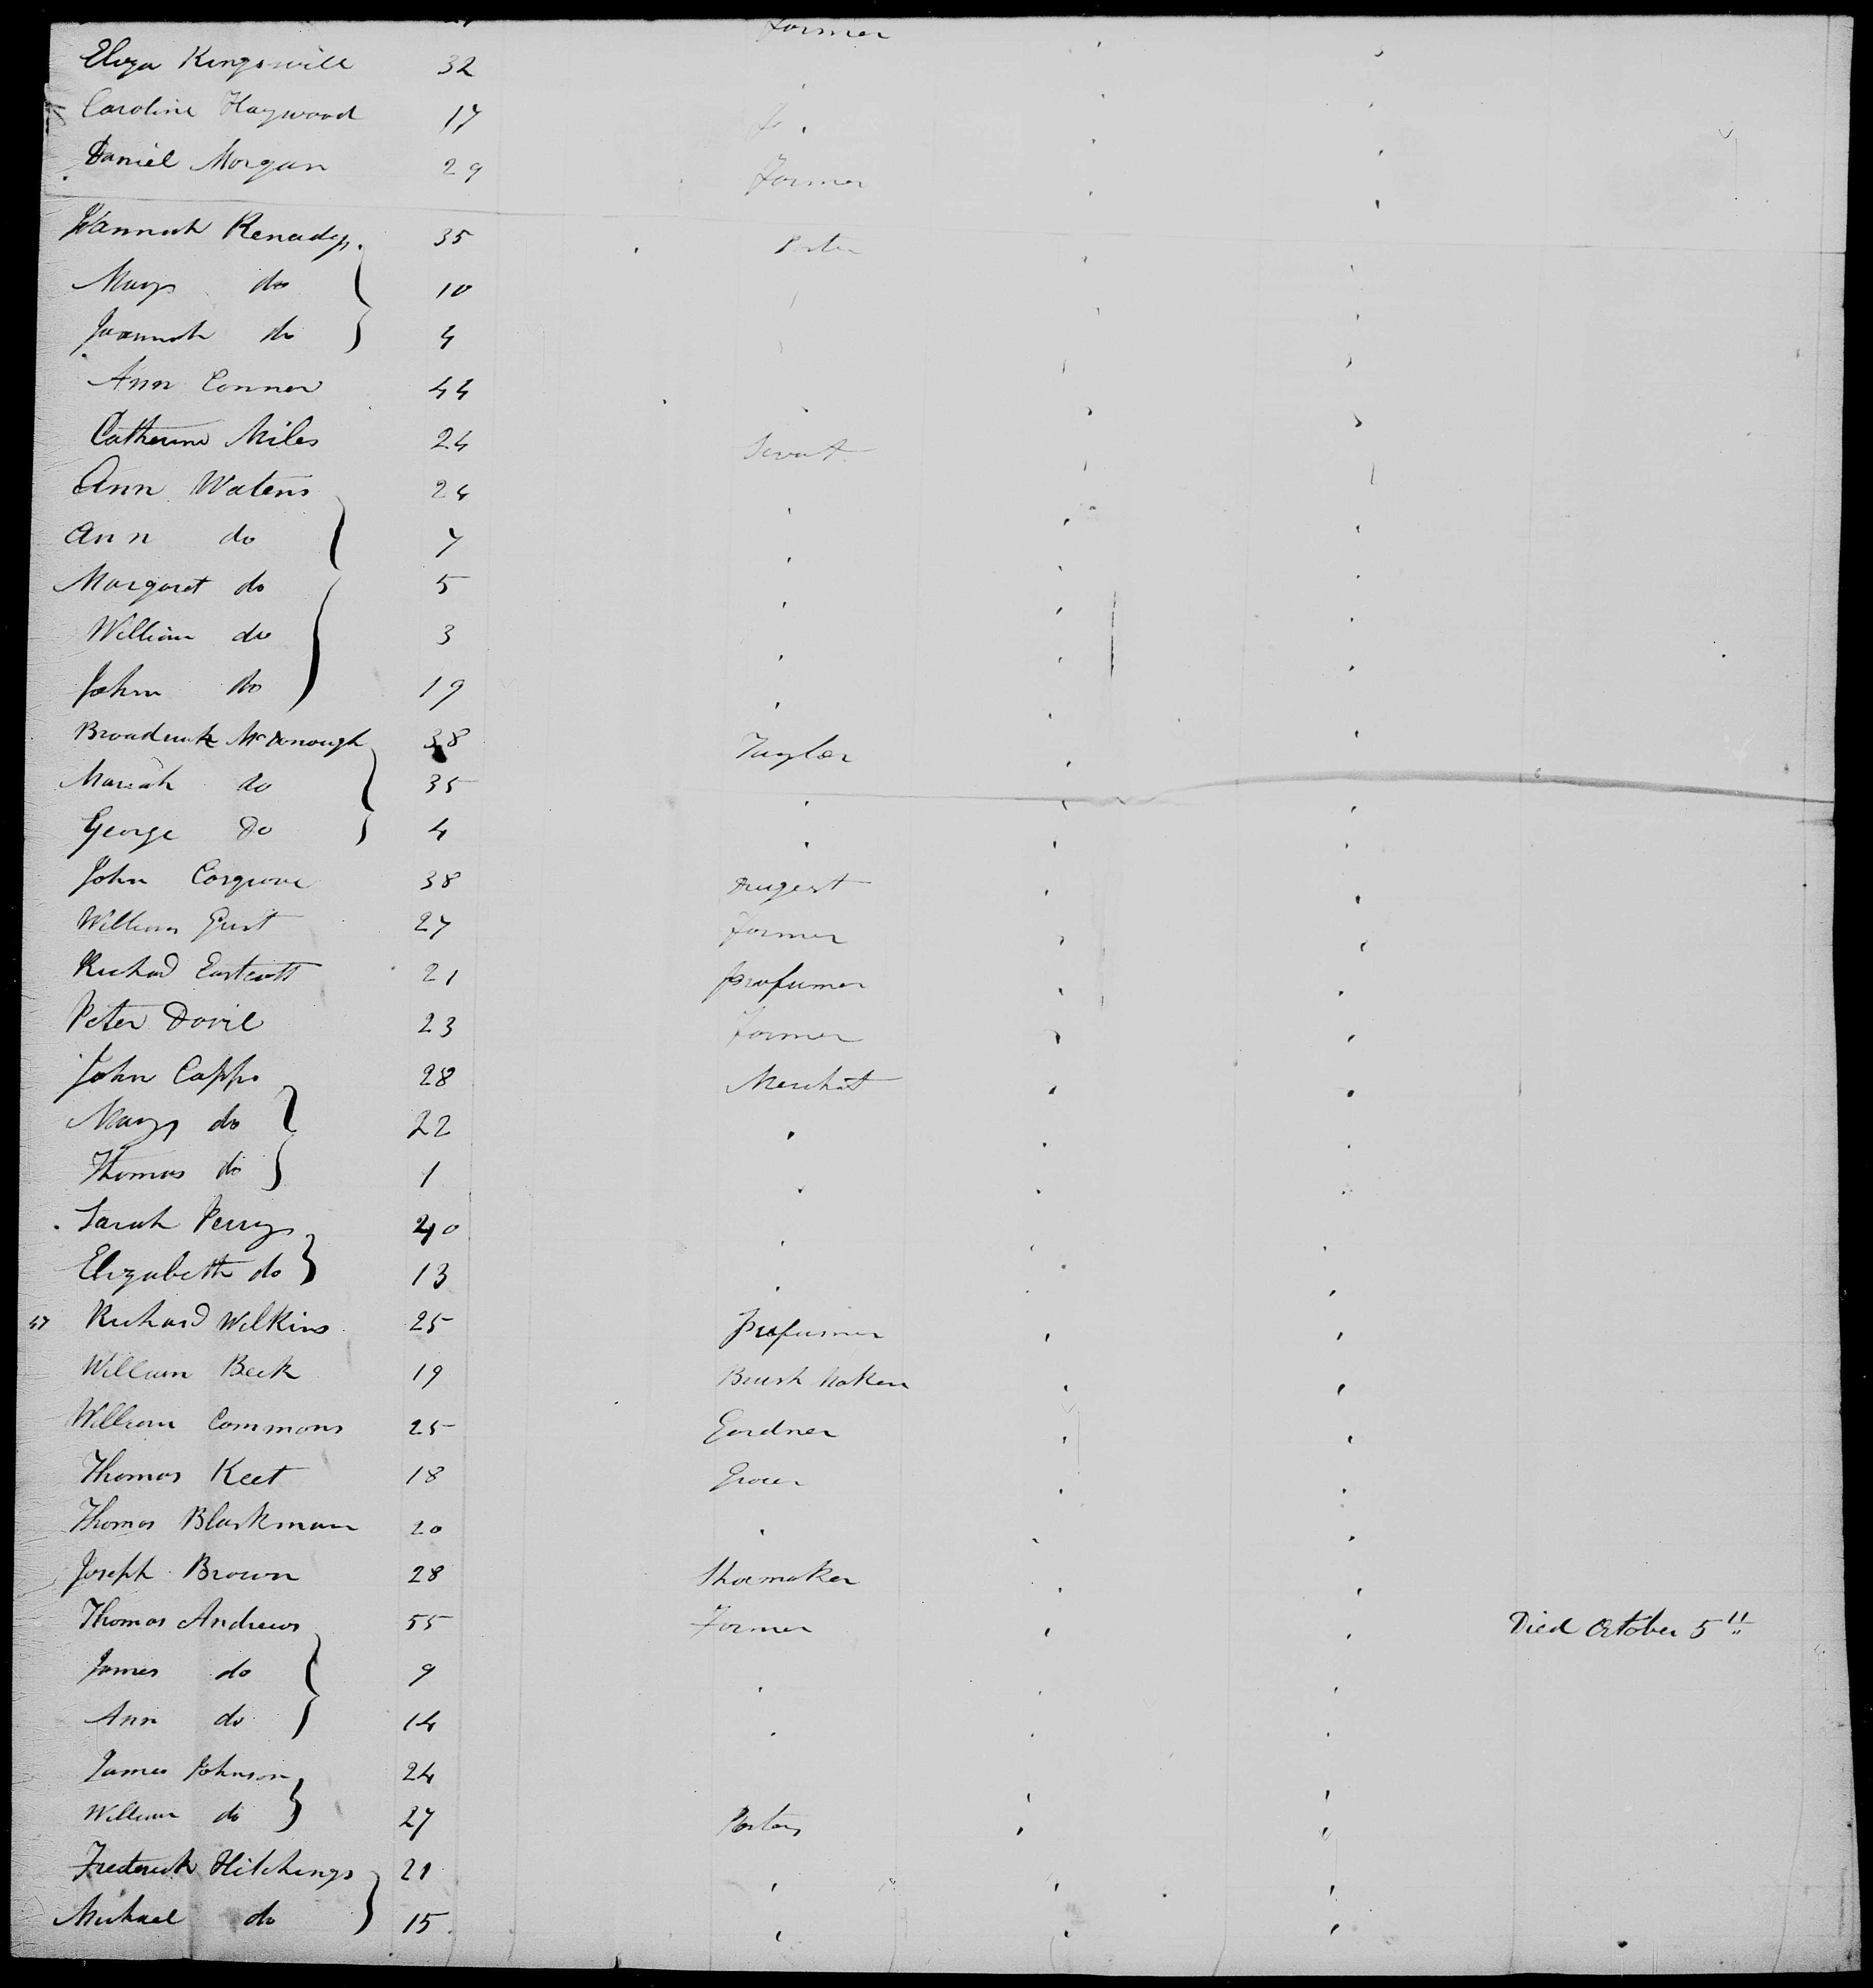 Farmer
Eliza Kingswill 32
Caroline Haywood 17
Daniel Morgan 29 Farmer
Hannah Kenady 35 Porter
Mary do 10
Joannah do 4
Ann Conner 44
Catherine Miles 24 Servat
Ann Waters 24
Ann do 7
Margaret do 5
William do 3
John do 19
Broadrick McDonough 38 Taylor
Mariah do 35
George Do 4
John Cosgrove 38 Drugest
William 27 Farmer
Richad Eastcott 21 Profumer
Peter Doril 23 Farmer
John Capps 28 Merchat
Mary do 22
Thomas do 1
Sarah Perry 40
Elizabeth do 13
47 Richard Wilkins 25 Profumer
William Beck 19 Brush Maker
William Commons 25 Gardner
Thomas Keet 18 Grocer
Thomas Blackman 20
Joseph Brown 28 Shoemaker
Thomas Andrews 55 Farmer Died October 5"
James do 9
Ann do 14
James Johnson 24
William do 27 Porter
Frederick Hitchings 21
Michael do 15